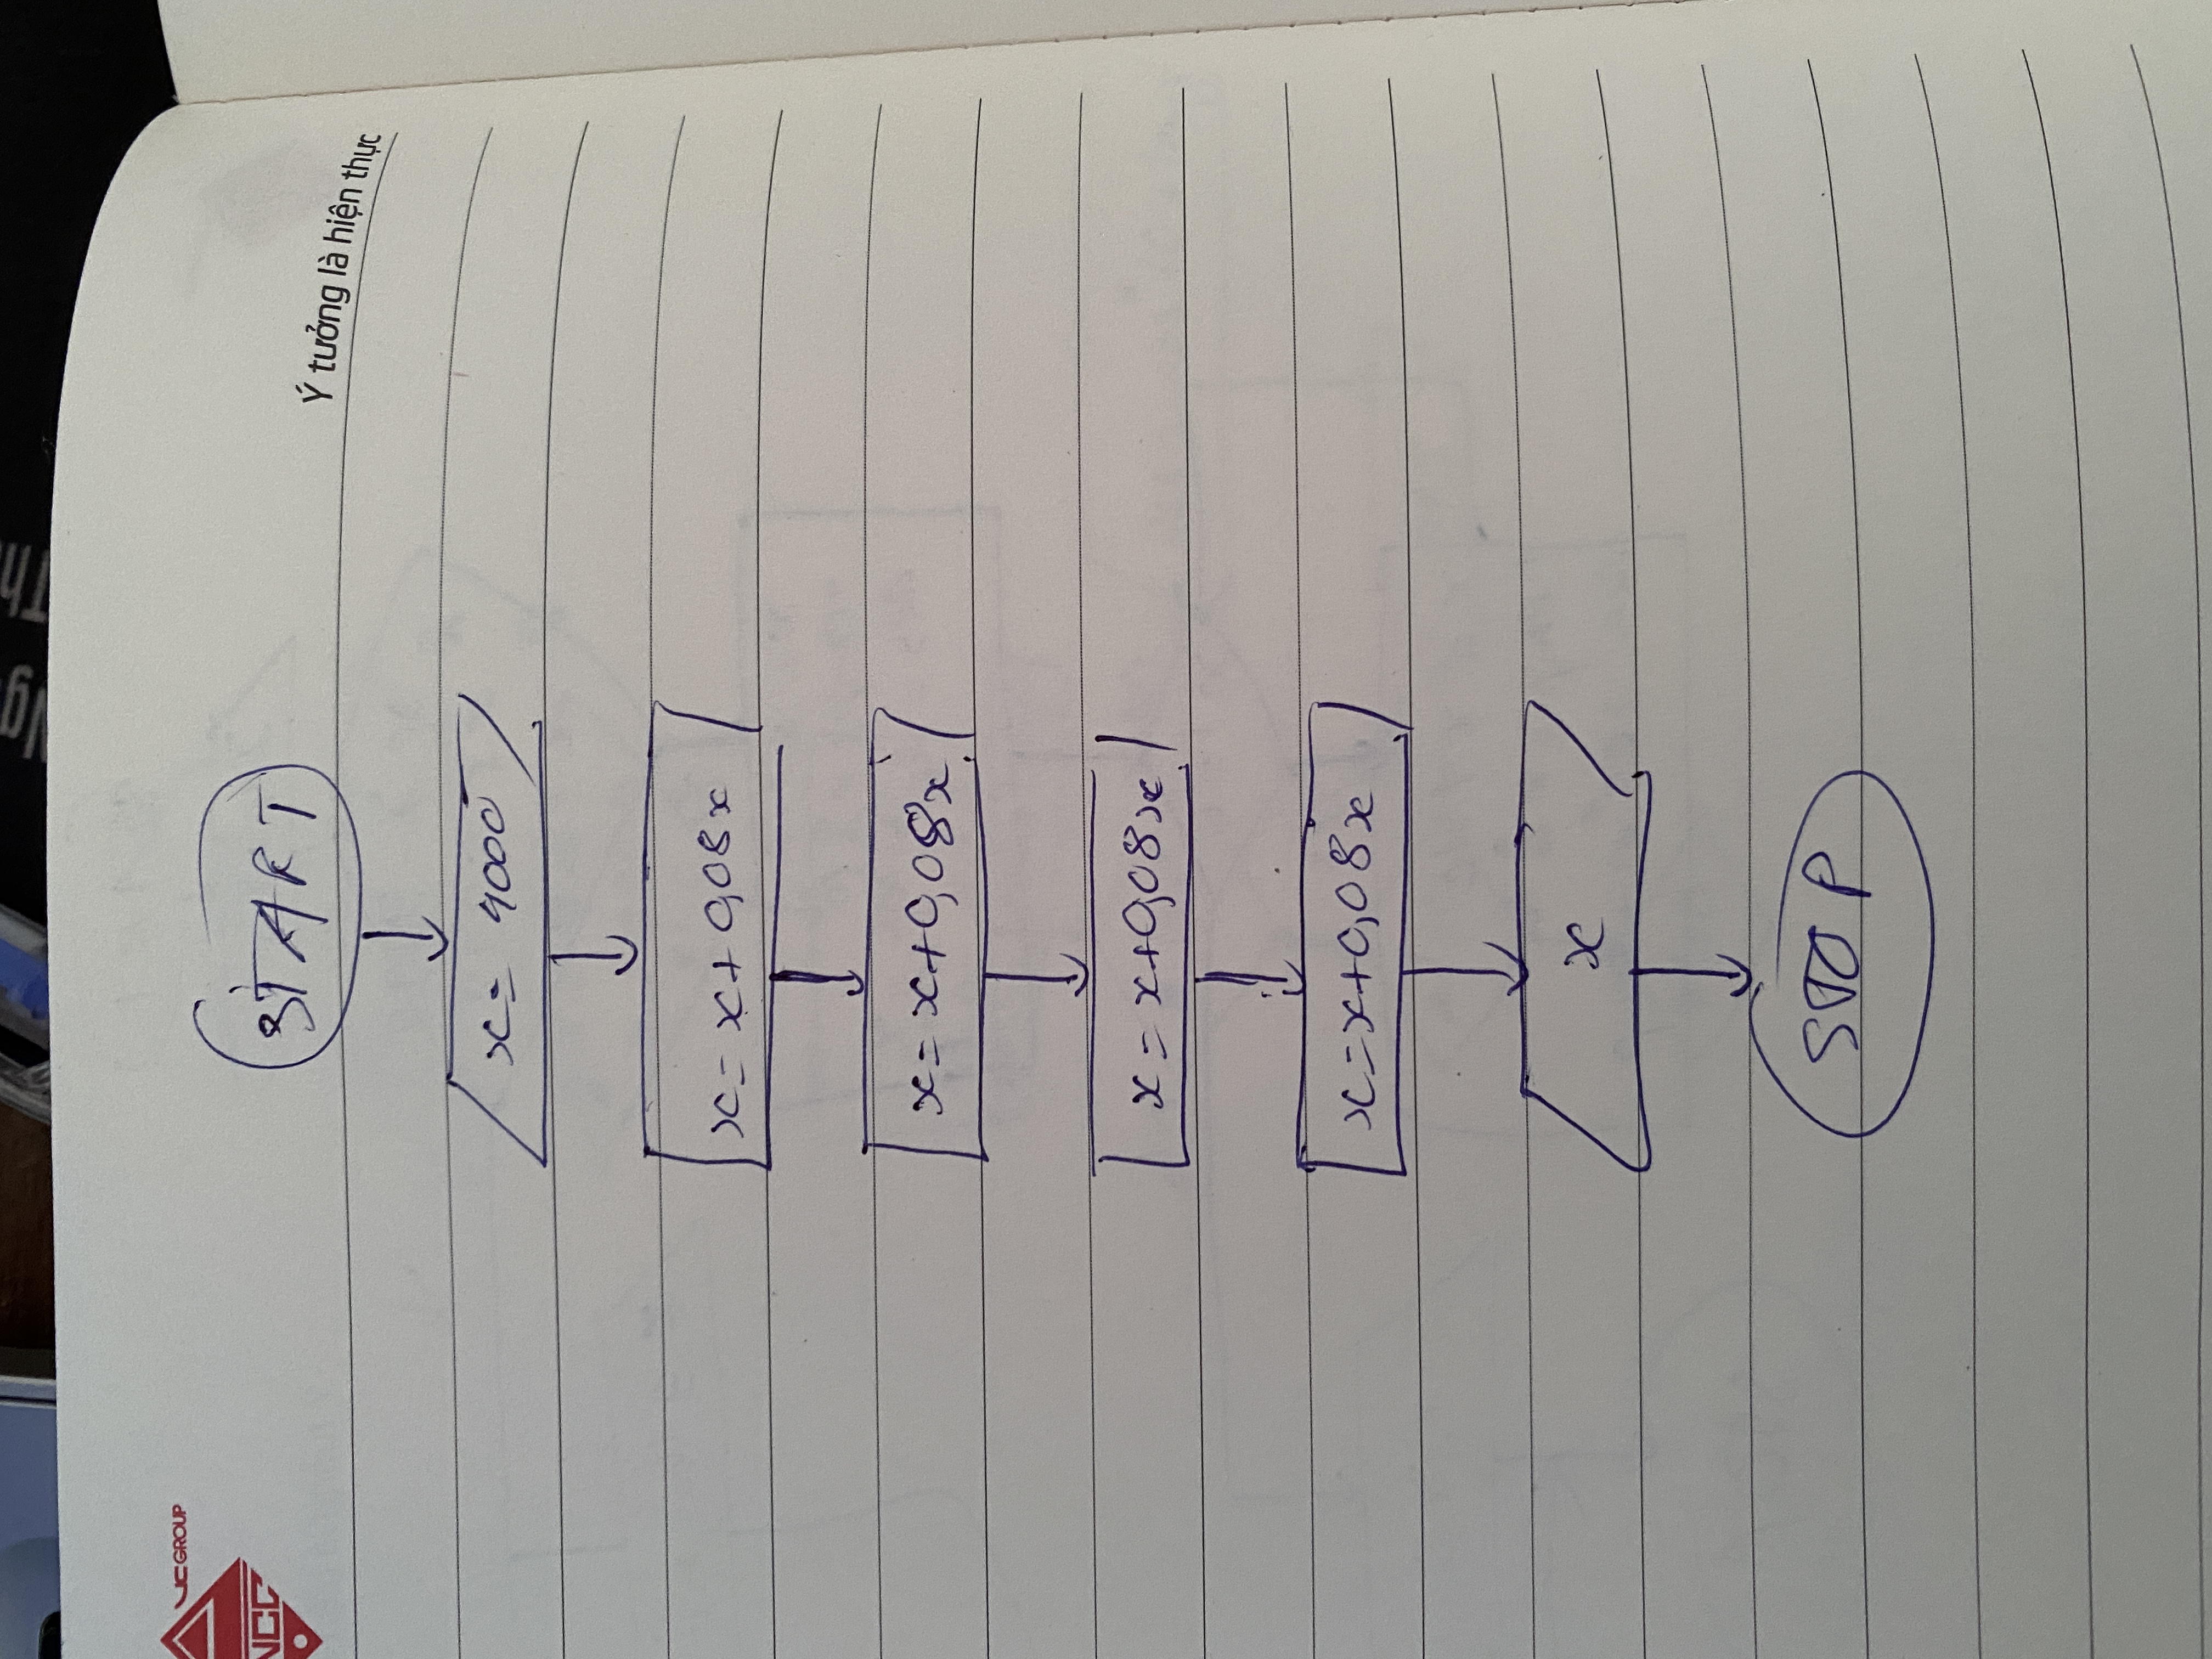 Ng
Th
VC GROUP
NCC
Ý tưởng là hiện thực
START
x = 4000
x = x + 0,08x
x = x + 0,08x
x = x + 0,08x
x = x + 0,08x
x
STOP